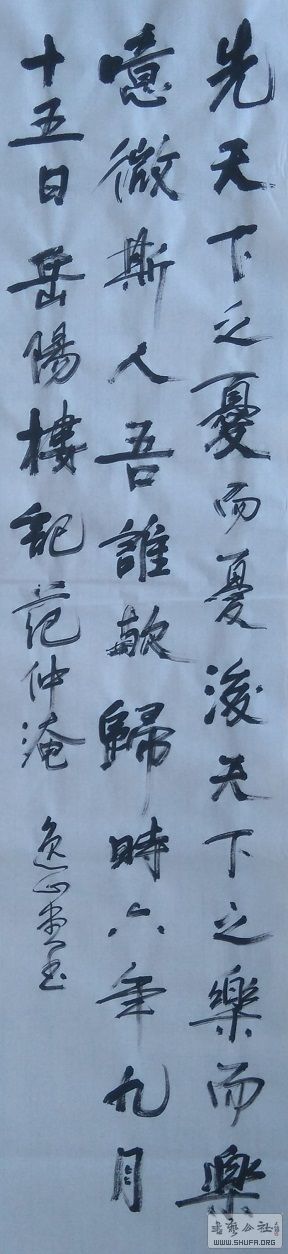 先天下之憂而憂後天下之樂而樂
噫微斯人吾誰歟歸時六年九月
十五日岳陽樓記范仲淹
書藝公社
WWW.SHUFA.ORG